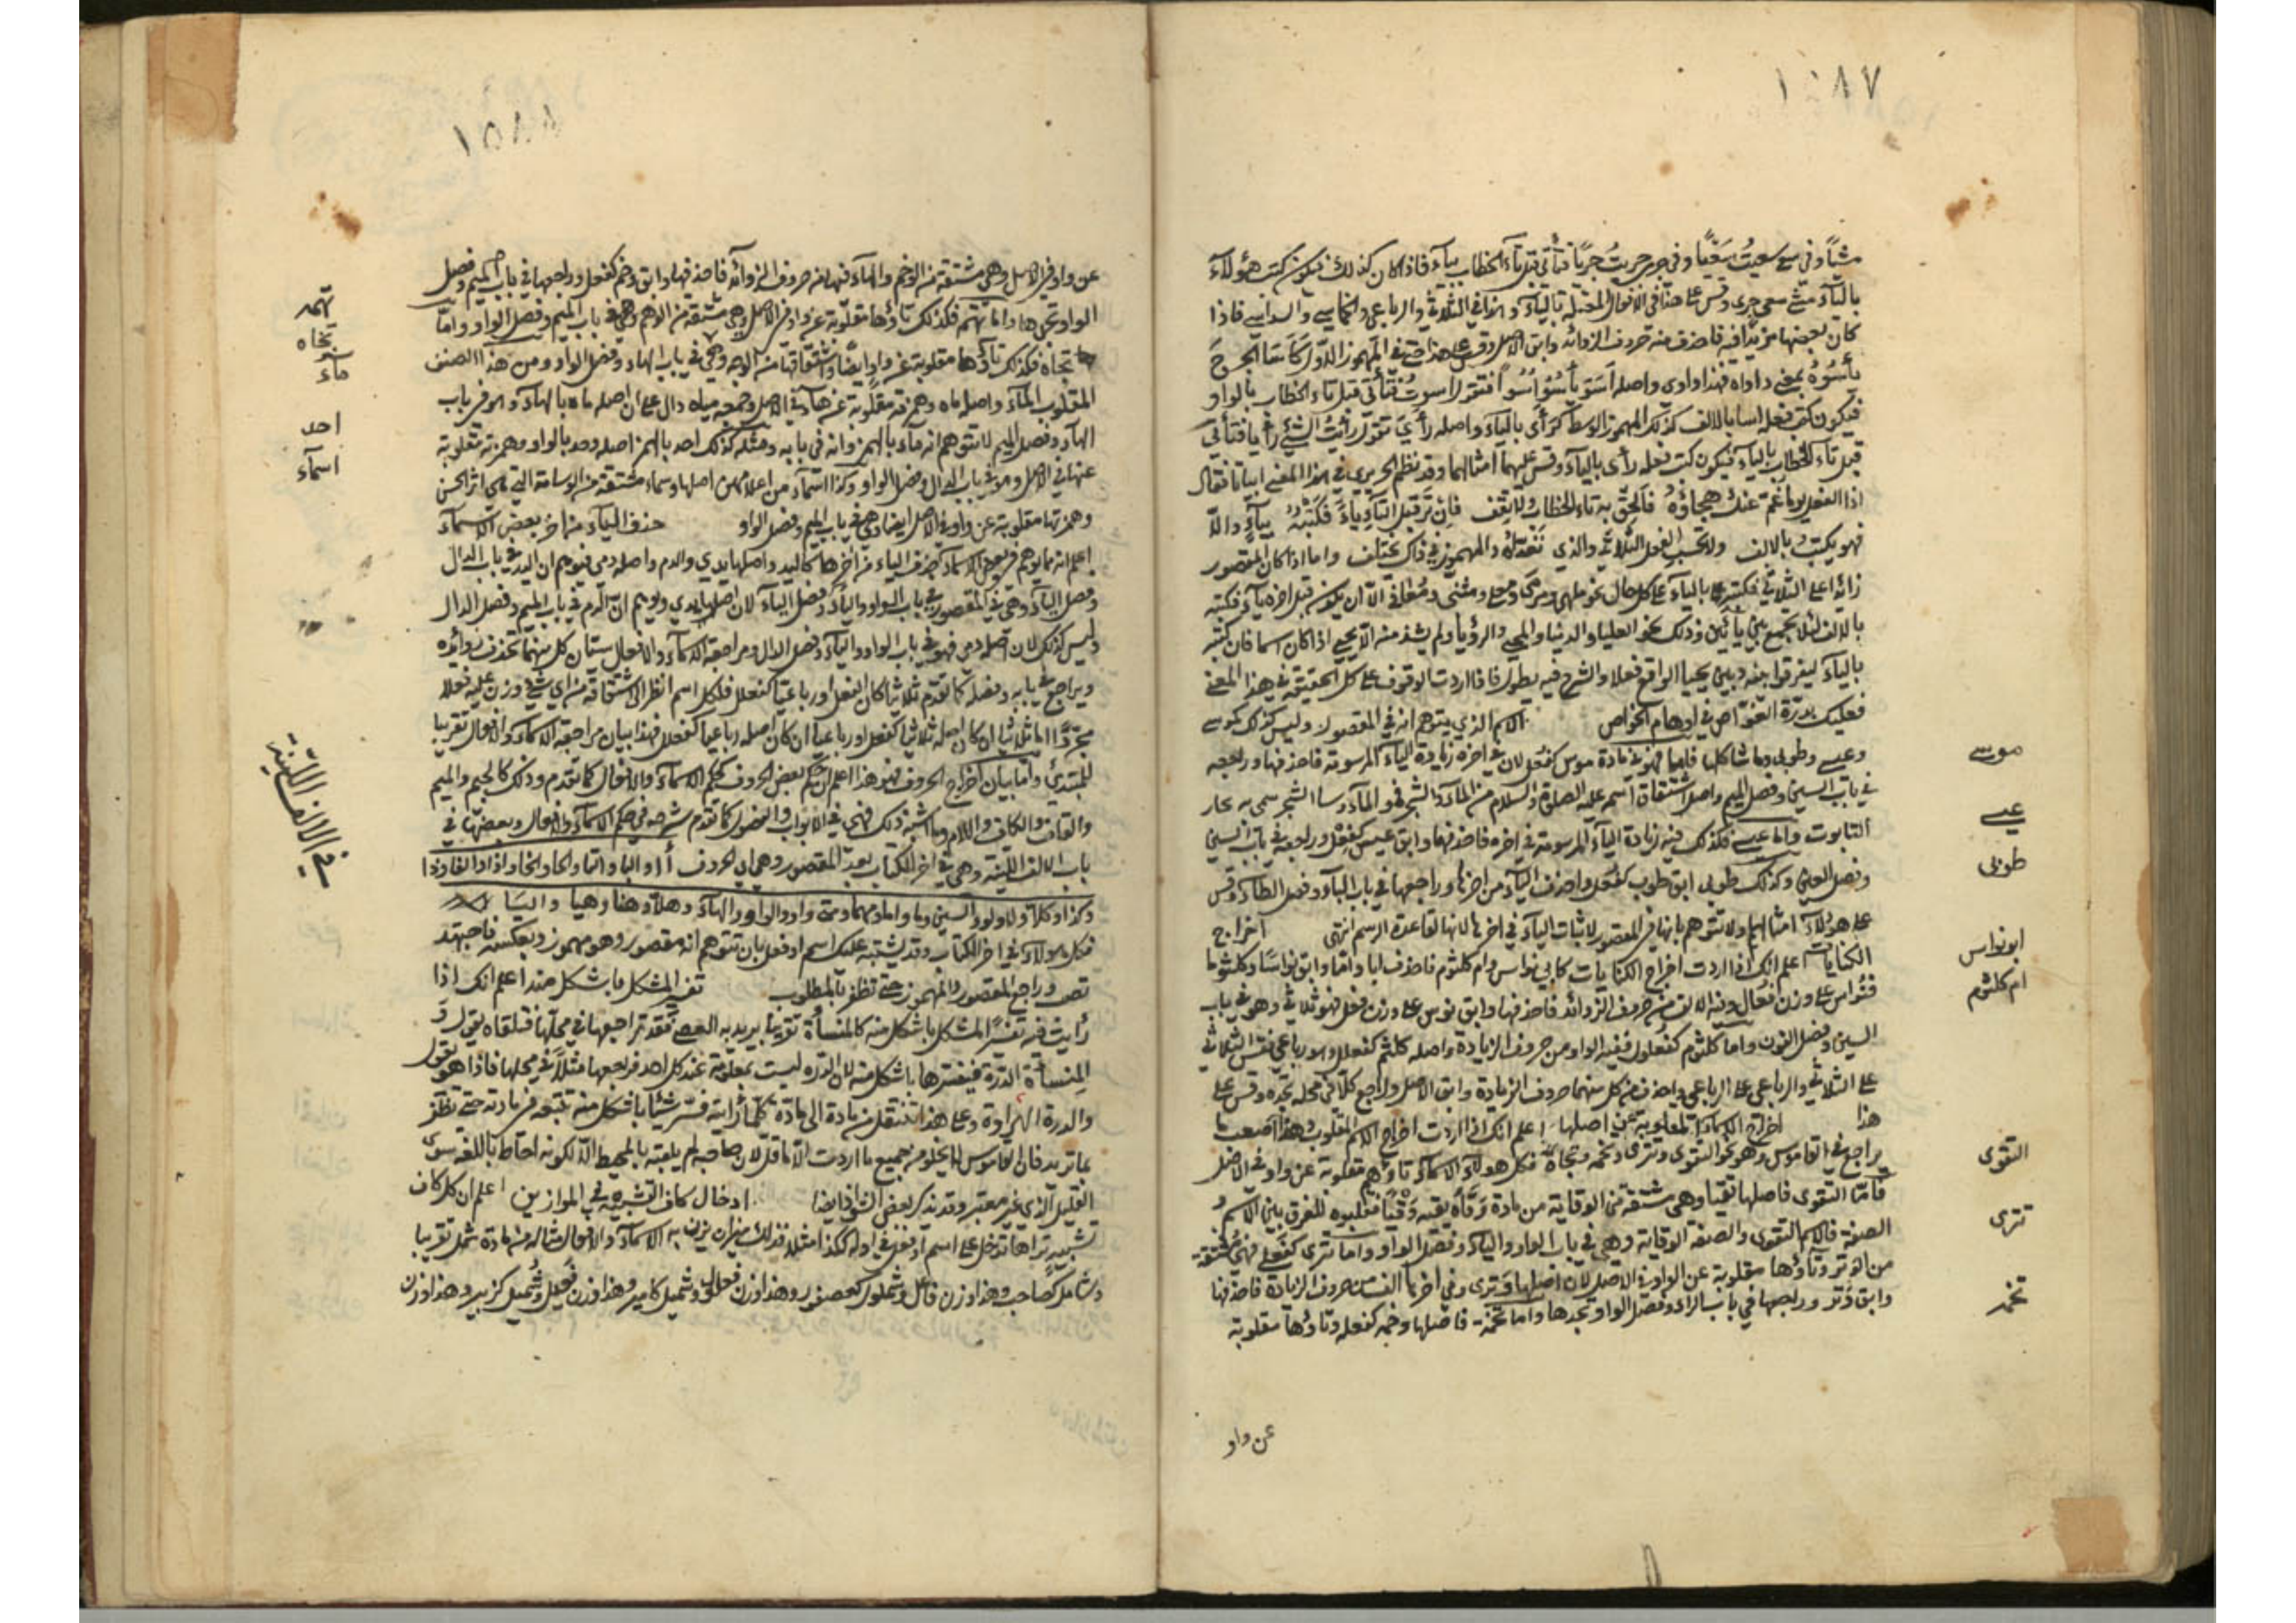 ١٥٨٧
مثلاً وفي سعى سعيتُ سَعْيًا وفي جرى جريتُ جريًا فتأتي قبل تاء الخطاب بياء فاذا كان كذلك فيكون كتب هؤلاء
بالياء مثل سعى جرى وقس على هذا في الافعال المعتلة بالياء وانها في الثلاثي والرباعي والخماسي والسداسي فاذا
كان بعضها مزيدا فيه فاحذف منه حروف الزوائد وابق الاصل وقس على هذا حتى في المهموز الاول كأسا الجرح
يأسوه بمعنى داواه فهذا واوي واصله اسو يأسو اسوا فتقول اسوت فتأتي قبل تاء الخطاب بالواو
فيكون كتب فعله اسا بالالف كذلك المهموز الوسط كرأى بالياء واصله رأي تقول رأيت الشئ رأيا فتأتي
قبل تاء الخطاب بالياء فيكون كتب فعله رأى بالياء وقس عليهما امثالهما وقد نظم الحريري في هذا المعنى ابياتا فقال
اذا الفعل يوما غم عنك هجاؤه فألحق به تاء الخطاب ولا تقف فان تر قبل التاء ياء فكتبه بياء والا
فهو يكتب بالالف ولا تحسب الفعل الثلاثي والذي تعداه والمهموز في ذاك يختلف واما اذا كان المقصور
زائدا على الثلاثي فكتبه بالياء على كل حال نحو ملهى ومرمى ومحلى ومثنى ومعافى الا ان يكون قبل اخره ياء فكتبه
بالالف لئلا يجمع بين يائين وذلك نحو العليا والدنيا والمحيا والرؤيا ولم يشذ منه الا يحيى اذا كان اسما فان كتبه
بالياء ليفرقوا بينه وبين يحيا الواقع فعلا والشرح فيه يطول فاذا اردت الوقوف على كل الحقيقة في هذا المعنى
فعليك بدرة الغواص في اوهام الخواص الاسم الذي يتوهم انه في المقصور وليس كذلك كموسى
وعيسى وطوبى وما شاكلها فاما فهو في مادة موس كفعل لان في اخره زيادة الياء المرسومة فاحذفها وراجعه
في باب السين وفصل الميم واصل اشتقاق اسمه عليه الصلوة والسلام من الماء والشجر فمو الماء وسا الشجر سمي به
التابوت واما عيسى فكذلك فيه زيادة الياء المرسومة في اخره فاحذفها وابق عيس كفعل وراجعه في باب السين
وفصل العين وكذلك طوبى ابق طوب كفعل واحذف الياء من اخرها وراجعها في باب الباء وفصل الطاء وقس
على هؤلاء امثالهما ولا تتوهم بانها في المقصور لاثبات الياء في اخرها لانها لقاعدة الرسم انتهى اخراج
الكنايات اعلم انك اذا اردت اخراج الكنايات كابي نواس وام كلثوم فاحذف ابا واما وابق نواسا وكلثوما
فنواس على وزن فعال وفيه الالف من حروف الزوائد فاحذفها وابق نوس على وزن فعل فهو ثلاثي وهو في باب
السين وفصل النون واما كلثوم كفعلول ففيه الواو من حروف الزيادة واصله كلثم كفعلل وهو رباعي فقس الثلاثي
على الثلاثي والرباعي على الرباعي واحذف من كل منهما حروف الزيادة وابق الاصل وراجع كلا في محله تجده وقس على
هذا اخراج الاسماء المقلوبة عن اصلها اعلم انك اذا اردت اخراج الاسم المقلوب وهذا اصعب ما
يراجع في القاموس وهو نحو التقوى وتترى وتخمة وتجاه فكل هؤلاء الاسماء تاؤهم مقلوبة عن واو في الاصل
فاما التقوى فاصلها تقيا وهي مشتقة من الوقاية من مادة وقاه يقيه وقيا فقلبوه للفرق بين الاسم و
الصفة فالاسم التقوى والصفة الوقاية وهي في باب الواو والياء وفصل الواو واما تترى كفعلى فهي مشتقة
من الوتر وتاؤها مقلوبة عن الواو في الاصل لان اصلها وترى وفي اخرها الف من حروف الزيادة فاحذفها
وابق وتر وراجعها في باب الراء وفصل الواو تجدها واما تخمة فاصلها وخمه كفعله وتاؤها مقلوبة
عن واو
موسى
عيسى
طوبى
ابو نواس
ام كلثوم
التقوى
تترى
تخمه
١٥٨٨
عن واو في الاصل وهي مشتقة من الوخم والهاء فيها من حروف الزوائد فاحذفها وابق وخم كفعل وراجعها في باب الميم وفصل
الواو تجدها واما تهم فكذلك تاؤها مقلوبة عن واو في الاصل وهي مشتقة من الوهم وهي في باب الميم وفصل الواو واما
تجاه فكذلك تاؤها مقلوبة عن واو ايضا واشتقاقها من الوجه وهي في باب الهاء وفصل الواو ومن هذا الصنف
المقلوب الماء واصله ماه وهمزته مقلوبة عن هاء في الاصل وجمعه مياه دال على ان اصله ماه بالهاء وهو في باب
الهاء وفصل الميم لا تتوهم انه ماء بالهمز وانه في بابه ومثله كذلك احد بالهمز اصله وحد بالواو وهمزته مقلوبة
عنها في الاصل وهو في باب الدال وفصل الواو وكذا اسماء من اعلامهن اصلها وسماء مشتقة من الوسامة التي هي اثر الحسن
وهمزتها مقلوبة عن واو في الاصل ايضا وهي في باب الميم وفصل الواو حذف الياء من اخر بعض الاسماء
اعلم انه مما يوهم في بعض الاسماء بحذف الياء من اخرها كاليد واصلها يدي والدم واصله دمي فتوهم ان اليد في باب الدال
وفصل الياء وهي في المقصور في باب الواو والياء وفصل الياء لان اصلها يدي ويوهم ان الدم في باب الميم وفصل الدال
وليس كذلك لان اصله دمي فهو في باب الواو والياء وفصل الدال ومراجعة الاسماء والافعال سيان كل منهما تحذف زوائده
ويراجع في بابه وفصله كما تقدم ثلاثيا كان الفعل او رباعيا كفعلل فلكل اسم انظر الى اشتقاقه من اي شئ وزن عليه فعلا
مجردا اما ثلاثيا ان كان اصله ثلاثيا كفعل او رباعيا ان كان اصله رباعيا كفعلل فهذا بيان مراجعة الاسماء والافعال تقريبا
للمبتدئ واما بيان اخراج الحروف فهو هذا اعلم ان حكم بعض الحروف كحكم الاسماء والافعال كما تقدم وذلك كالجيم والميم
والقاف والكاف واللام وما اشبه ذلك فهي في الابواب والفصول كما تقدم شرحه في حكم الاسماء والافعال وبعضها في
باب الالف اللينة وهي في اخر الكتاب بعد المقصور وهي اي الحروف أ ا و البا و التا و الحا و الخا و اذا
وكذا وكلا ولا ولو والسين وما واما ومهما ومتى و وا و الواو و الهاء وهلا وهنا وهيا و اليا
فكل هؤلاء في اخر الكتاب وقد يشتبه عليك اسم او فعل بان تتوهم انه مقصور وهو مهموز وبعكسه فاجتهد
تصب وراجع المقصور والمهموز حتى تظفر بالمطلوب تفسر المشكل باشكل منه اعلم انك اذا
رأيت فيه تفسر المشكل باشكل منه كالمنسأة تقريبا يريد به العصى فقد تراجعها في محلها فتلقاه يقول و
المنسأة الدرة فيفسرها باشكل منه لان الدرة ليست بمعلومة عند كل احد فراجعها مثلا في محلها فاذا هو يقول
والدرة الهراوة وعلى هذا تنتقل من مادة الى مادة كلما رأيته فسر شيئا باشكل منه تتبعه في مادته حتى تظفر
بما تريد فان القاموس لا يخلو من جميع ما اردت الا ما قل لان صاحبه لم يلقبه بالمحيط الا لكونه احاط باللغة سوى
القليل الذي غير معتبر وقد يذكر بعض الشواذ ايضا ادخال كاف التشبيه في الموازين اعلم ان كل كاف
تشبيه تراها تدخل على اسم او فعل في اوله ككذا مثلا فذلك ميزان يزن به الاسماء والافعال مثاله من مادة شمل تقريبا
وشامل كصاحب وهذا وزن فاعل وشملول كعصفور وهذا وزن فعلول وشميل كامير وهذا وزن فعيل وشميل كزبير وهذا وزن
تهمه
تجاه
ماء
احد
اسماء
في الالف اللينة